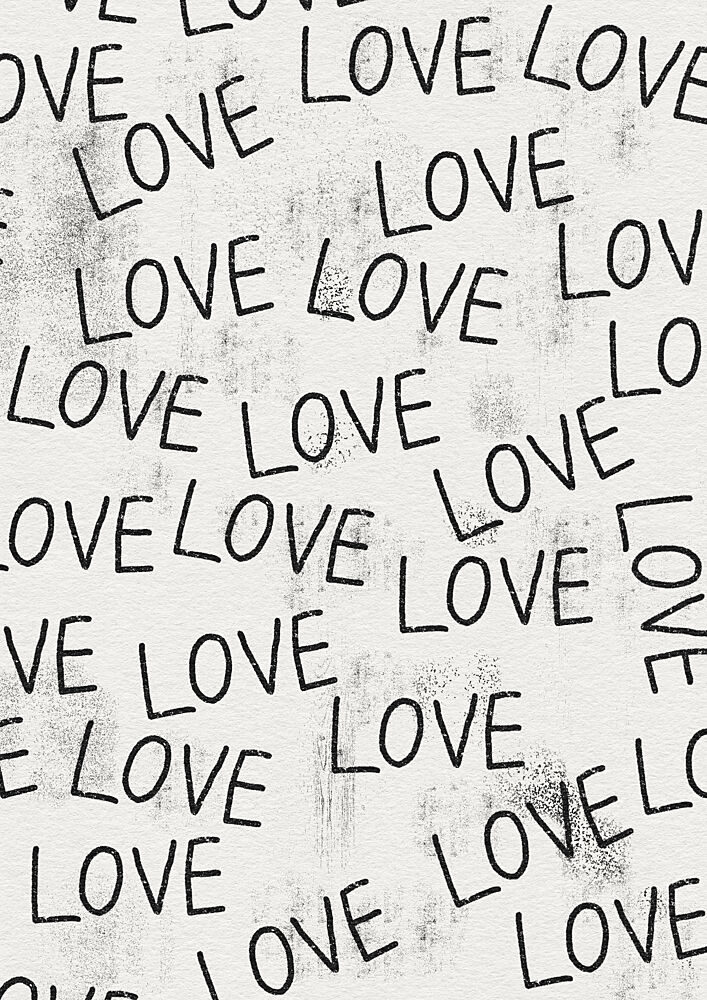 LOVE
LOVE
OVE
LOVE
LOVE
LOVE
LOVE
LOV
LO
LOVE
LOVE
LOVE
LOVE
LOVE
LOVE
LOVE
VE
LOVE
LOVE
E
LOVE
LO
LOVE
LOVE
LOVE
LOVE